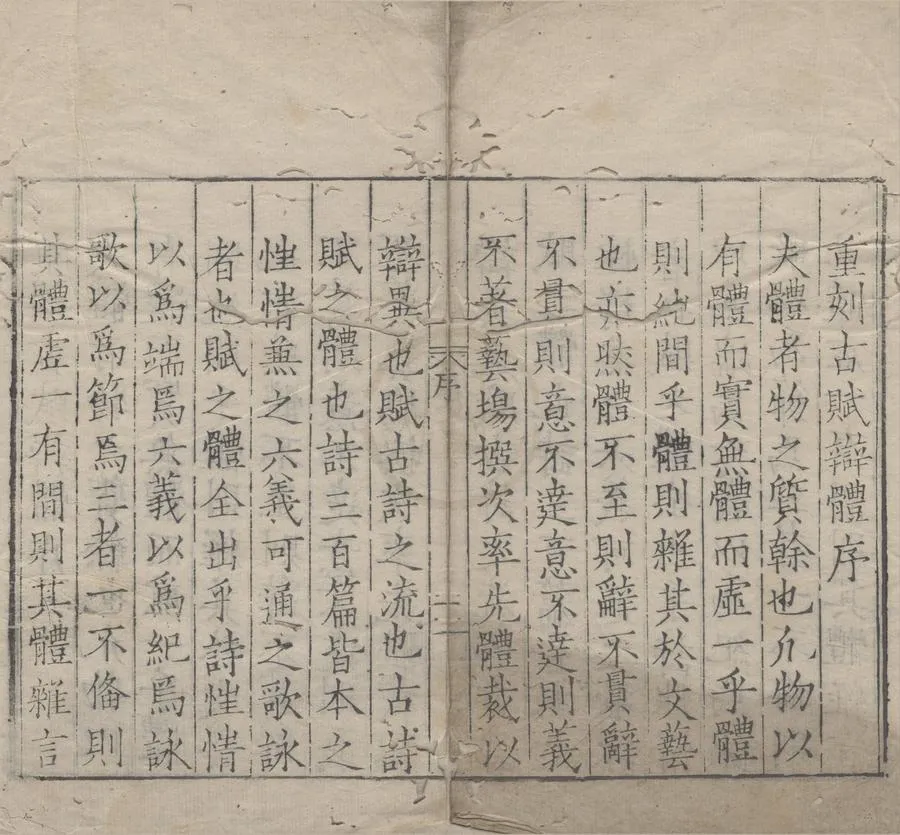 重刻古賦辯體序
夫體者物之質榦也凢物以
有體而實無體而虛一乎體
則純間乎體則雜其於文藝
也亦然體不至則辭不貫辭
不貫則意不達意不達則義
不著藝塲撰次率先體裁以
序
一
辯異也賦古詩之流也古詩
賦之體也詩三百篇皆本之
性情兼之六義可通之歌詠
者也賦之體全出乎詩性情
以爲端焉六義以爲紀焉詠
歌以爲節焉三者一不俻則
其體虛一有間則其體雜言